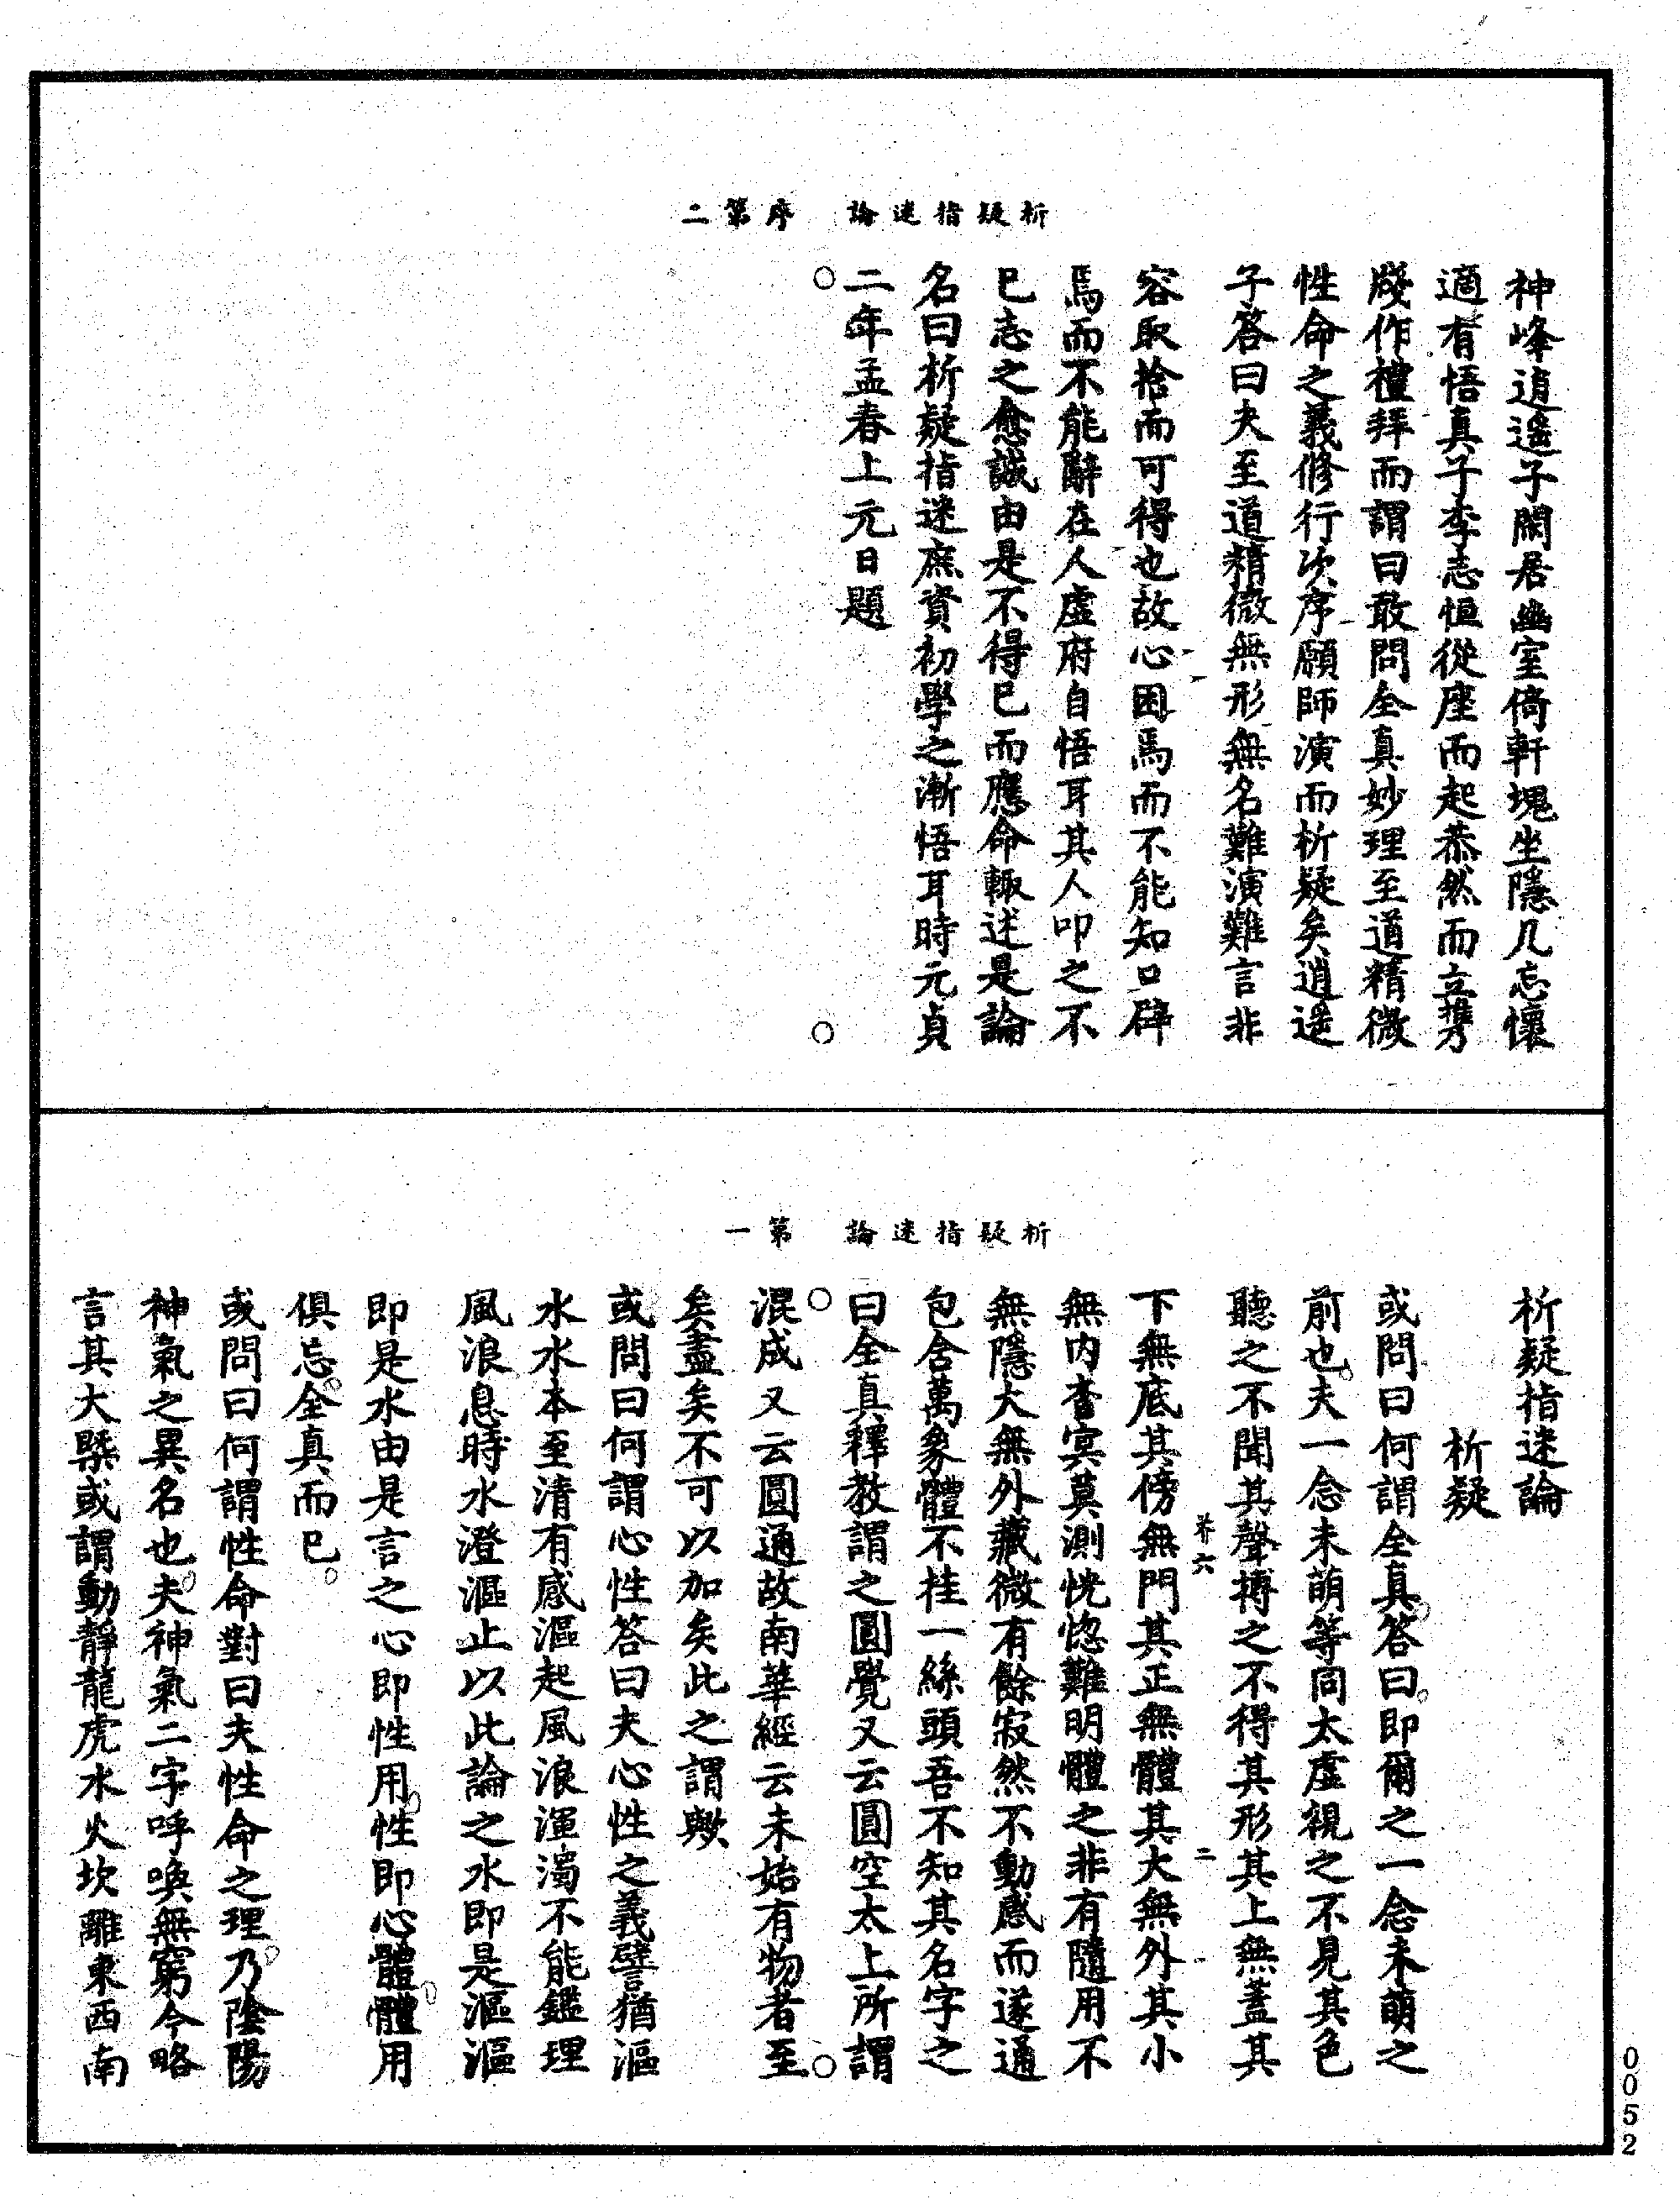 析疑指迷論　序第二
神峰逍遥子閑居幽室倚軒塊坐隱几忘懷
適有悟真子李志恒從座而起恭然而立攜
牋作禮拜而謂曰敢問全真妙理至道精微
性命之義修行次序願師演而析疑矣逍遥
子答曰夫至道精微無形無名難演難言非
容取捨而可得也故心困焉而不能知口辟
焉而不能辭在人虛府自悟耳其人叩之不
已志之愈誠由是不得已而應命輒述是論
名曰析疑指迷庶資初學之漸悟耳時元貞
二年孟春上元日題
析疑指迷論　第一
析疑指迷論
析疑
或問曰何謂全真答曰即爾之一念未萌之
前也夫一念未萌等同太虛視之不見其色
聽之不聞其聲搏之不得其形其上無蓋其
下無底其傍無門其正無體其大無外其小
無內杳冥莫測恍惚難明體之非有隨用不
無隱大無外藏微有餘寂然不動感而遂通
包含萬象體不挂一絲頭吾不知其名字之
曰全真釋教謂之圓覺又云圓空太上所謂
混成又云圓通故南華經云未始有物者至
矣盡矣不可以加矣此之謂歟
或問曰何謂心性答曰夫心性之義譬猶漚
水水本至清有感漚起風浪渾濁不能鑑理
風浪息時水澄漚止以此論之水即是漚漚
即是水由是言之心即性用性即心體體用
俱忘全真而已
或問曰何謂性命對曰夫性命之理乃陰陽
神氣之異名也夫神氣二字呼喚無窮今略
言其大槩或謂動靜龍虎水火坎離東西南
二
0052